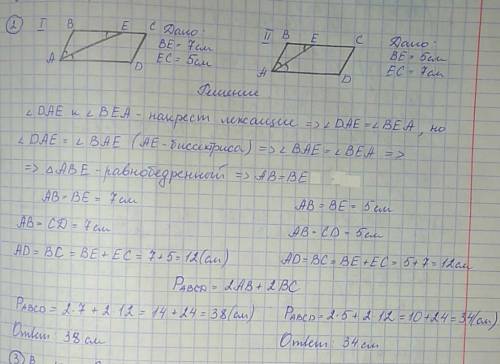 ② I B E C Дано: II B E C Дано:
BE = 7см BE = 5см
A D EC = 5см A D EC = 7см
Решение
∠DAE и ∠BEA - накрест лежащие => ∠DAE = ∠BEA, но
∠DAE = ∠BAE (AE - биссектриса) => ∠BAE = ∠BEA =>
=> △ABE - равнобедренный => AB = BE
AB = BE = 7см AB = BE = 5см
AB = CD = 7см AB = CD = 5см
AD = BC = BE + EC = 7 + 5 = 12(см) AD = BC = BE + EC = 5 + 7 = 12(см)
PABCD = 2AB + 2BC
PABCD = 2·7 + 2·12 = 14 + 24 = 38(см) PABCD = 2·5 + 2·12 = 10 + 24 = 34(см)
Ответ: 38 см Ответ: 34 см.
③ B